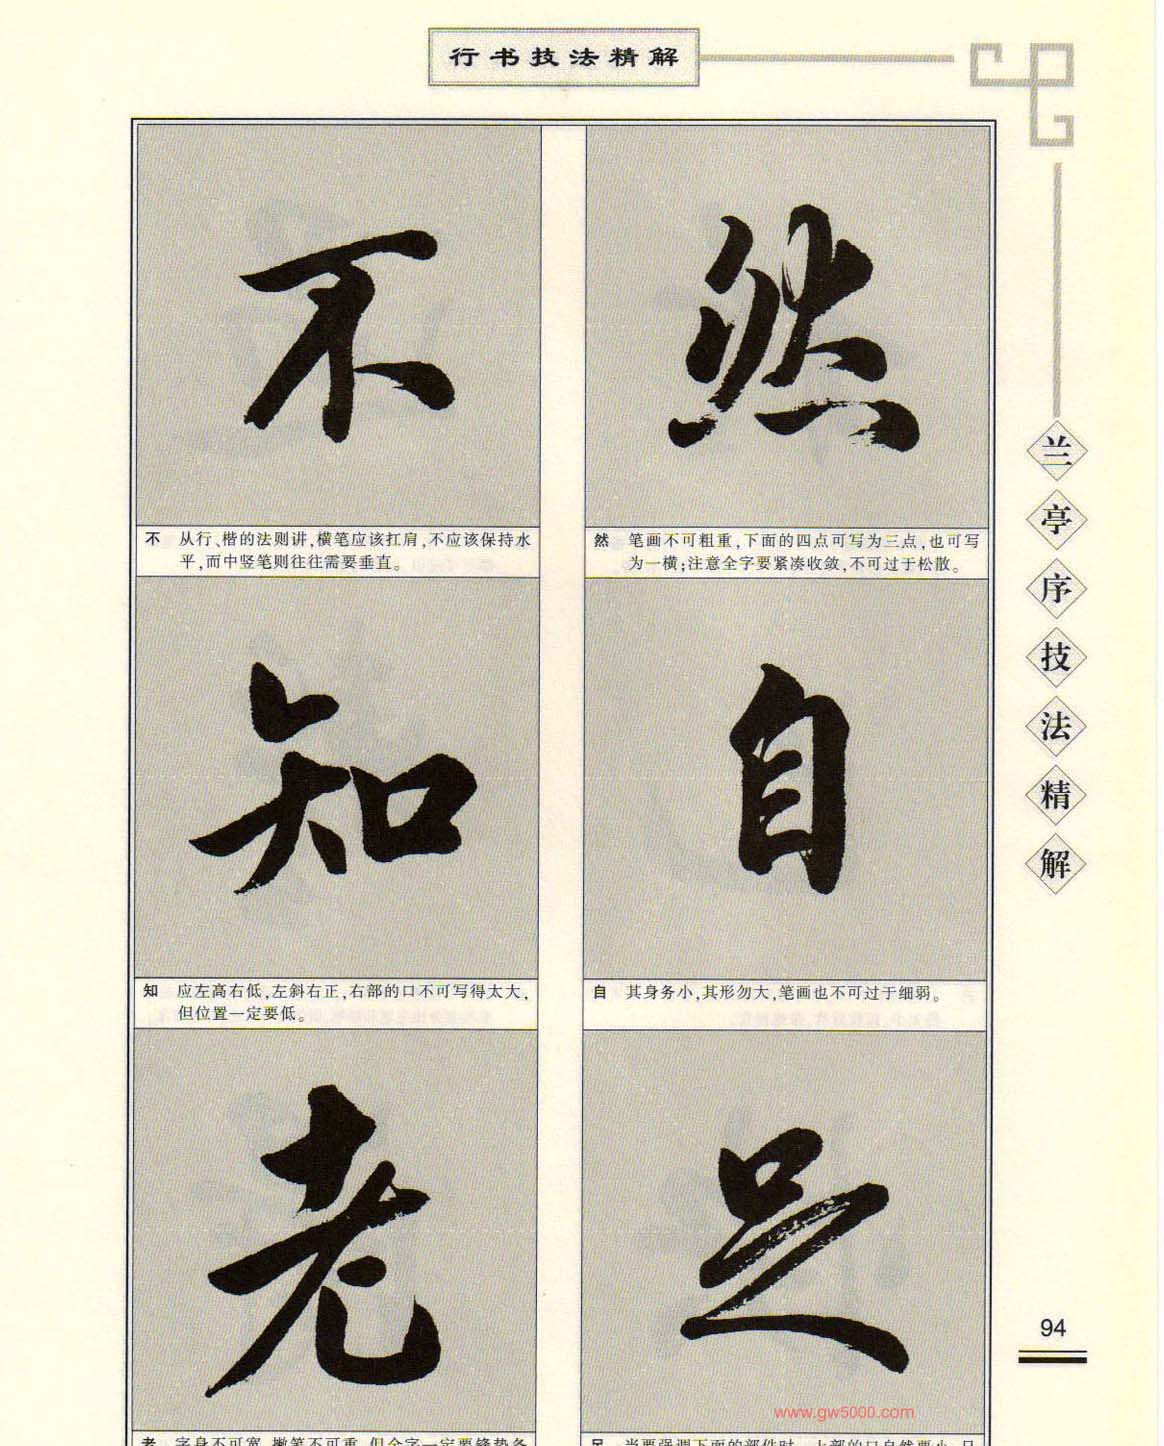 行书技法精解
不
然
不 从行、楷的法则讲,横笔应该扛肩,不应该保持水
平,而中竖笔则往往需要垂直。
然 笔画不可粗重,下面的四点可写为三点,也可写
为一横;注意全字要紧凑收敛,不可过于松散。
知
自
知 应左高右低,左斜右正,右部的口不可写得太大,
但位置一定要低。
自 其身务小,其形勿大,笔画也不可过于细弱。
老
足
老 字身不可宽,撇笔不可重,但全字一定要
足 当要强调下面的部件时,上部的口自然要小,只
兰亭序技法精解
94
www.gw5000.com